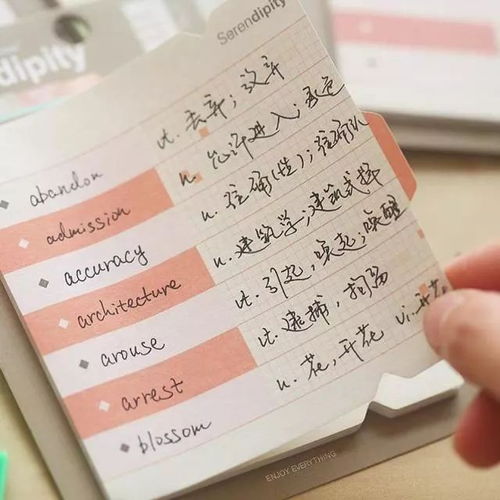 Serendipity
dipity
abandon vt. 丢弃；放弃
admission n. 允许进入；承认
accuracy n. 准确(性)；准确
architecture n. 建筑学；建筑式样
arouse vt. 引起，唤起；唤醒
arrest vt. 逮捕，扣留
blossom n. 花，开花 vi. 开花
ENJOY EVERYTHING